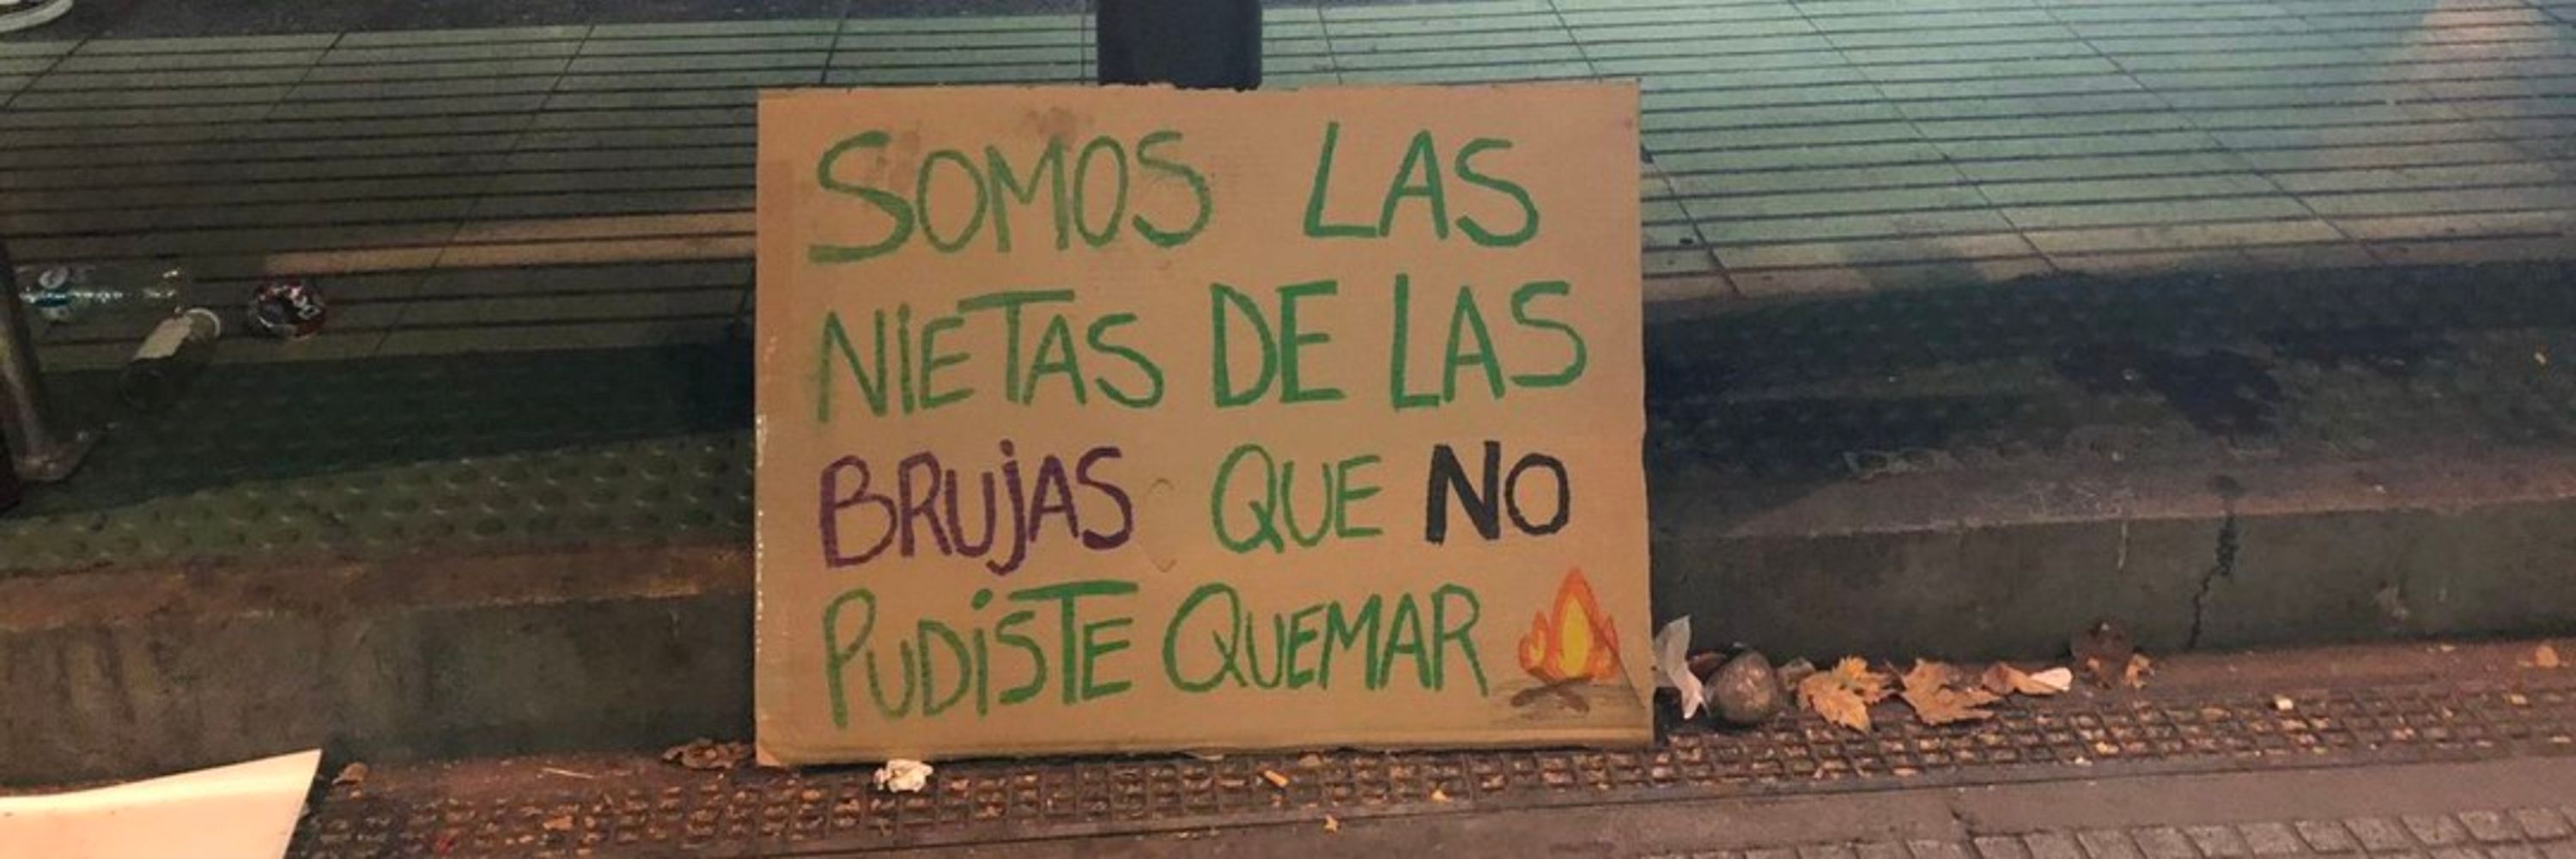 SOMOS LAS
NIETAS DE LAS
BRUjAS QUE NO
PUDiSTE QUEMAR